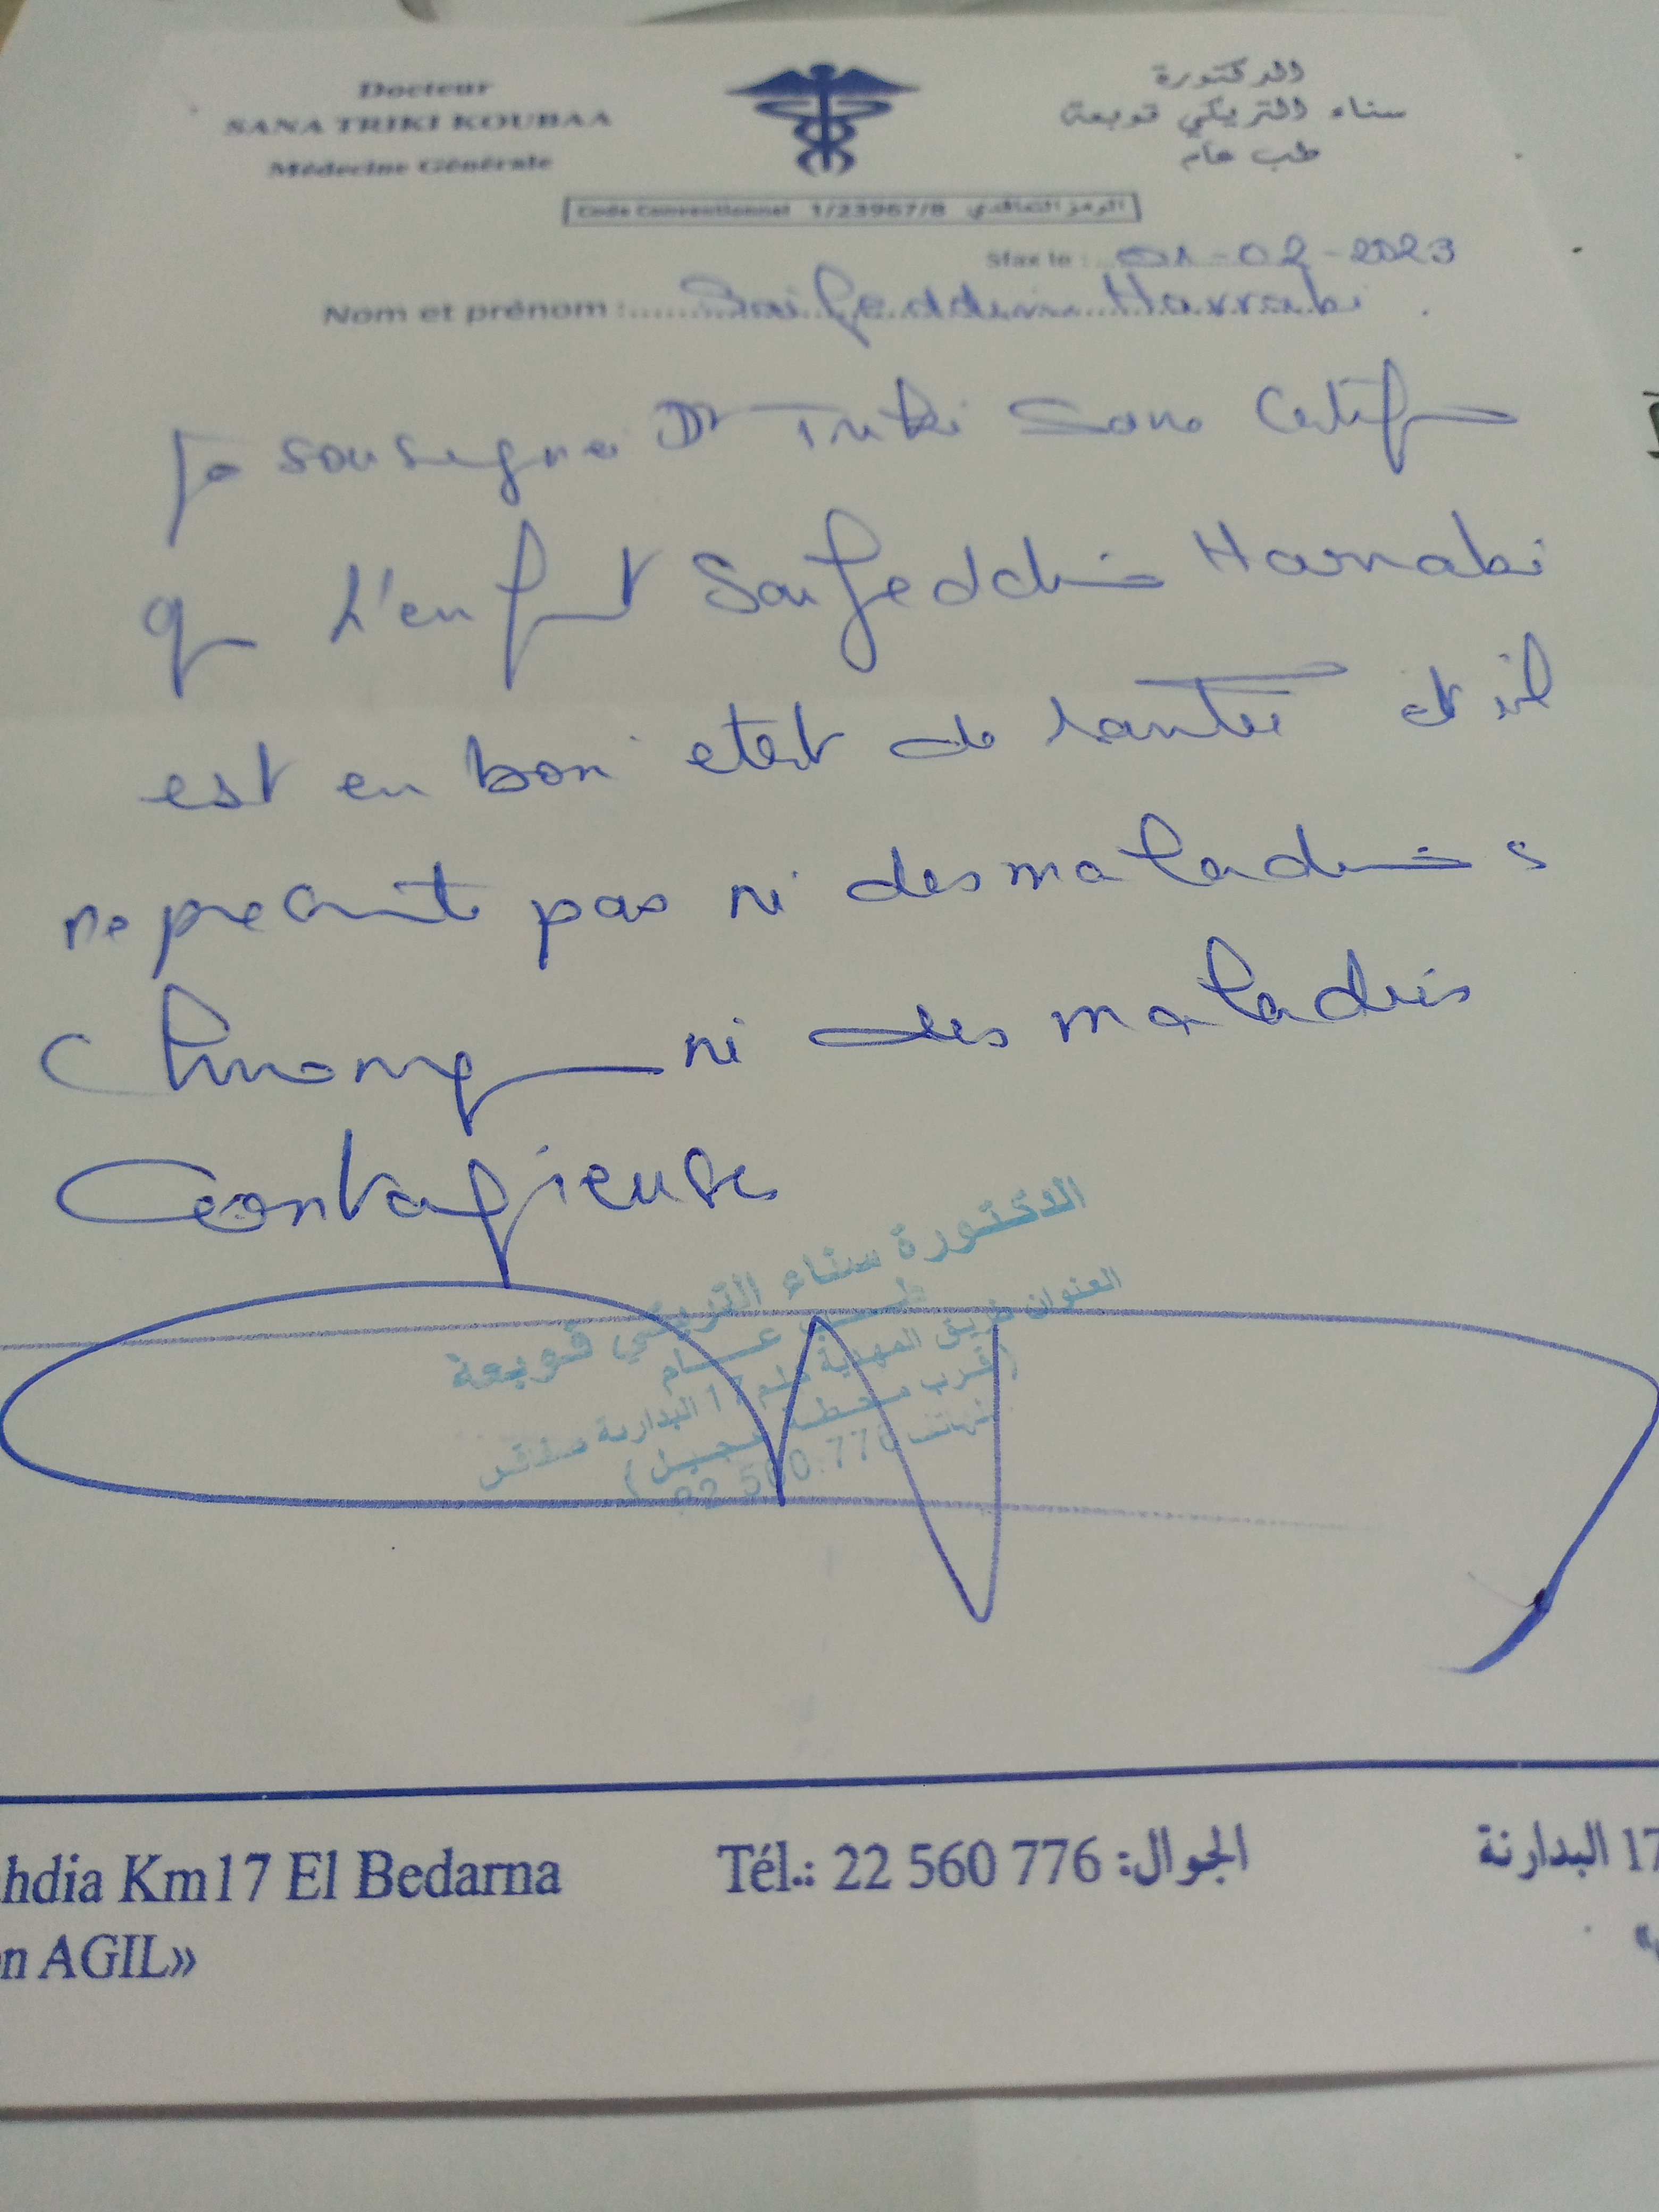 Docteur
SANA TRIKI KOUBAA
Médecine Générale
الدكتورة
سناء التريكي قوبعة
طب عام
Code Conventionnel 1/23967/8 الرمز التعاقدي
Sfax le : 01-02-2023
Nom et prénom : Saifeddine Harrabi
Je soussigné Dr Triki Sana Certifie
que L'enfant Saifeddine Harrabi
est en bon etat de santé et il
ne presente pas ni des maladies
Chronique ni des maladies
Contagieuses
الدكتورة سناء التريكي قوبعة
طب عام
العنوان طريق المهدية كلم 17 البدارنة صفاقس
(قرب محطة عجيل)
الهاتف 22 560 776
hdia Km17 El Bedarna
n AGIL»
Tél.: 22 560 776 :الجوال
17 البدارنة